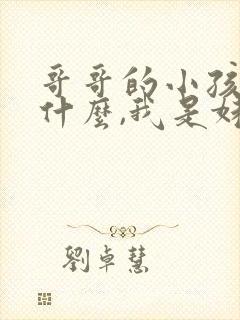 哥哥的小孩
什麼,我是
劉卓慧